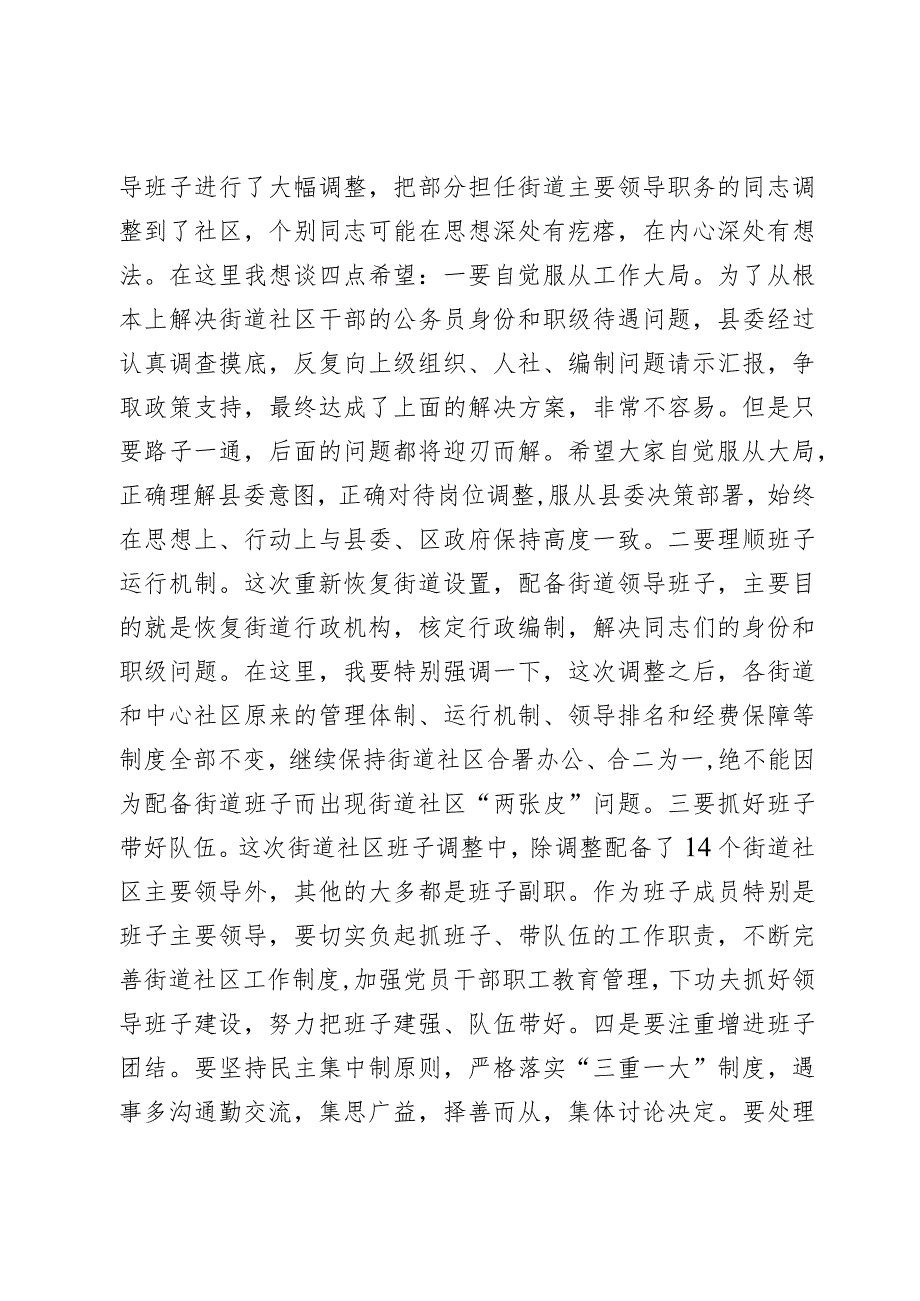 导班子进行了大幅调整，把部分担任街道主要领导职务的同志调
整到了社区，个别同志可能在思想深处有疙瘩，在内心深处有想
法。在这里我想谈四点希望：一要自觉服从工作大局。为了从根
本上解决街道社区干部的公务员身份和职级待遇问题，县委经过
认真调查摸底，反复向上级组织、人社、编制问题请示汇报，争
取政策支持，最终达成了上面的解决方案，非常不容易。但是只
要路子一通，后面的问题都将迎刃而解。希望大家自觉服从大局，
正确理解县委意图，正确对待岗位调整,服从县委决策部署，始终
在思想上、行动上与县委、区政府保持高度一致。二要理顺班子
运行机制。这次重新恢复街道设置，配备街道领导班子，主要目
的就是恢复街道行政机构，核定行政编制，解决同志们的身份和
职级问题。在这里，我要特别强调一下，这次调整之后，各街道
和中心社区原来的管理体制、运行机制、领导排名和经费保障等
制度全部不变，继续保持街道社区合署办公、合二为一,绝不能因
为配备街道班子而出现街道社区“两张皮”问题。三要抓好班子
带好队伍。这次街道社区班子调整中，除调整配备了 14 个街道社
区主要领导外，其他的大多都是班子副职。作为班子成员特别是
班子主要领导，要切实负起抓班子、带队伍的工作职责，不断完
善街道社区工作制度,加强党员干部职工教育管理，下功夫抓好领
导班子建设，努力把班子建强、队伍带好。四是要注重增进班子
团结。要坚持民主集中制原则，严格落实“三重一大”制度，遇
事多沟通勤交流，集思广益，择善而从，集体讨论决定。要处理